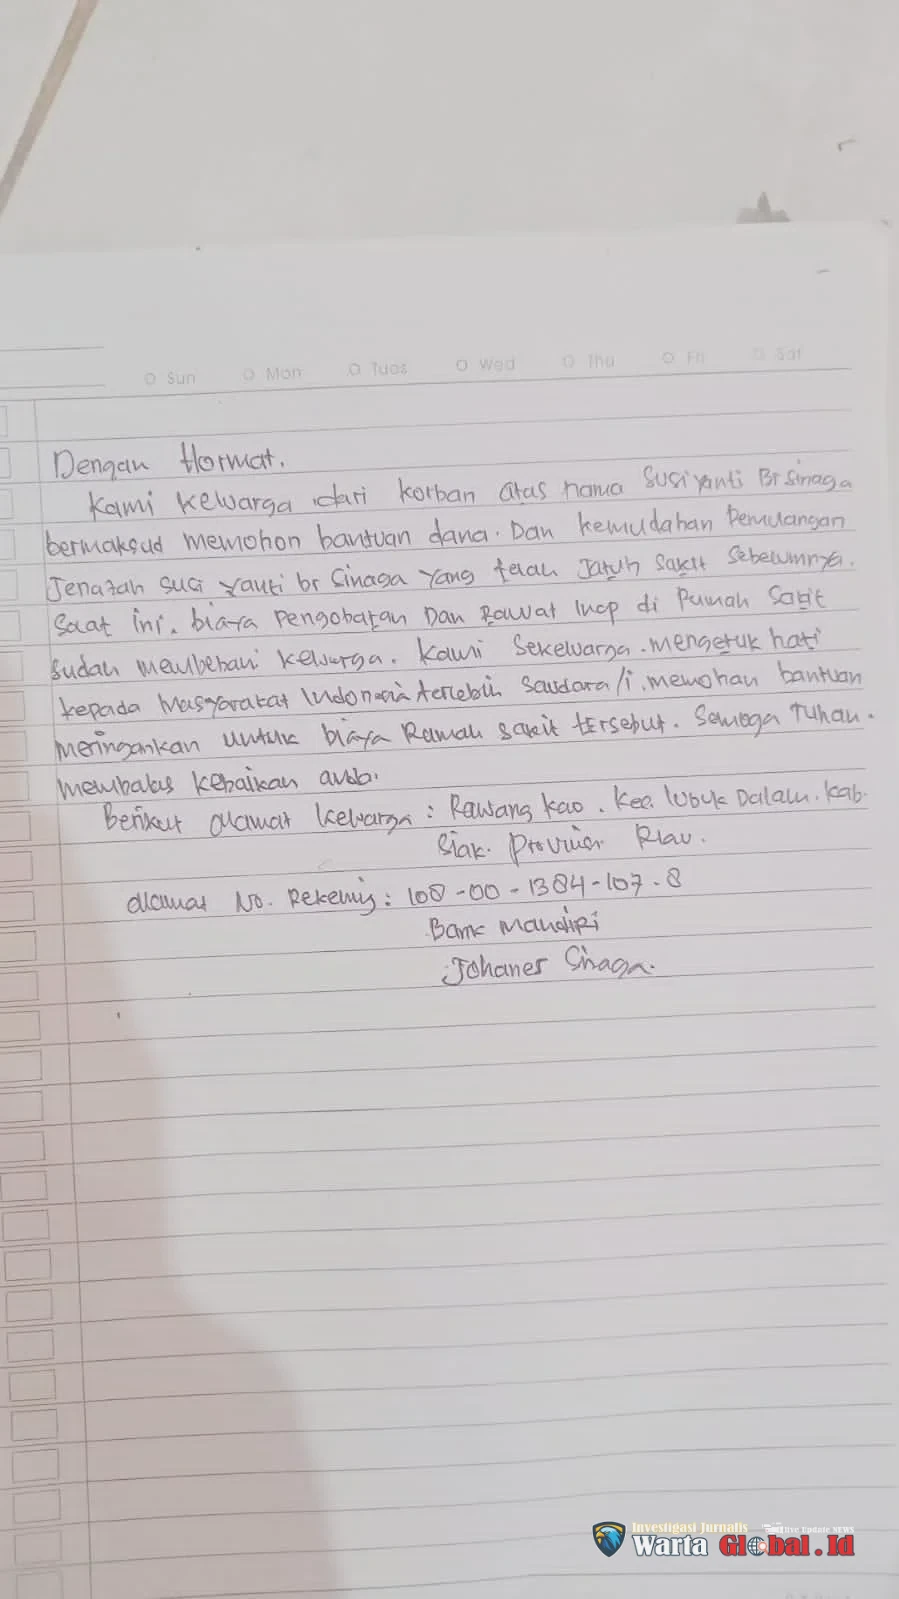 Sun Mon Tues Wed Thu Fri Sat
Dengan Hormat.
Kami Kewarga dari korban atas nama Susiyanti Br Sinaga
bermaksud memohon bantuan dana. Dan kemudahan Pemulangan
Jenazah Susi Yanti br Sinaga Yang telah Jatuh Sakit Sebelumnya.
Saat ini. biaya Pengobatan Dan Rawat Inap di Rumah Sakit
Sudah membebani kewarga. Kami Sekewarga. mengetuk hati
kepada Masyarakat Indonesia terlebih Saudara/i. memohon bantuan
meringankan untuk biaya Rumah sakit tersebut. Semoga Tuhan.
membalas kebaikan anda.
Berikut alamat Kewarga : Rawang kao . Kec. lubuk Dalam. kab.
Siak. Provinsi Riau.
alamat No. Rekening : 108-00-1384-107-8
Bank Mandiri
Johanes Sinaga.
Investigasi Jurnalis Live Update NEWS
Warta Global.Id